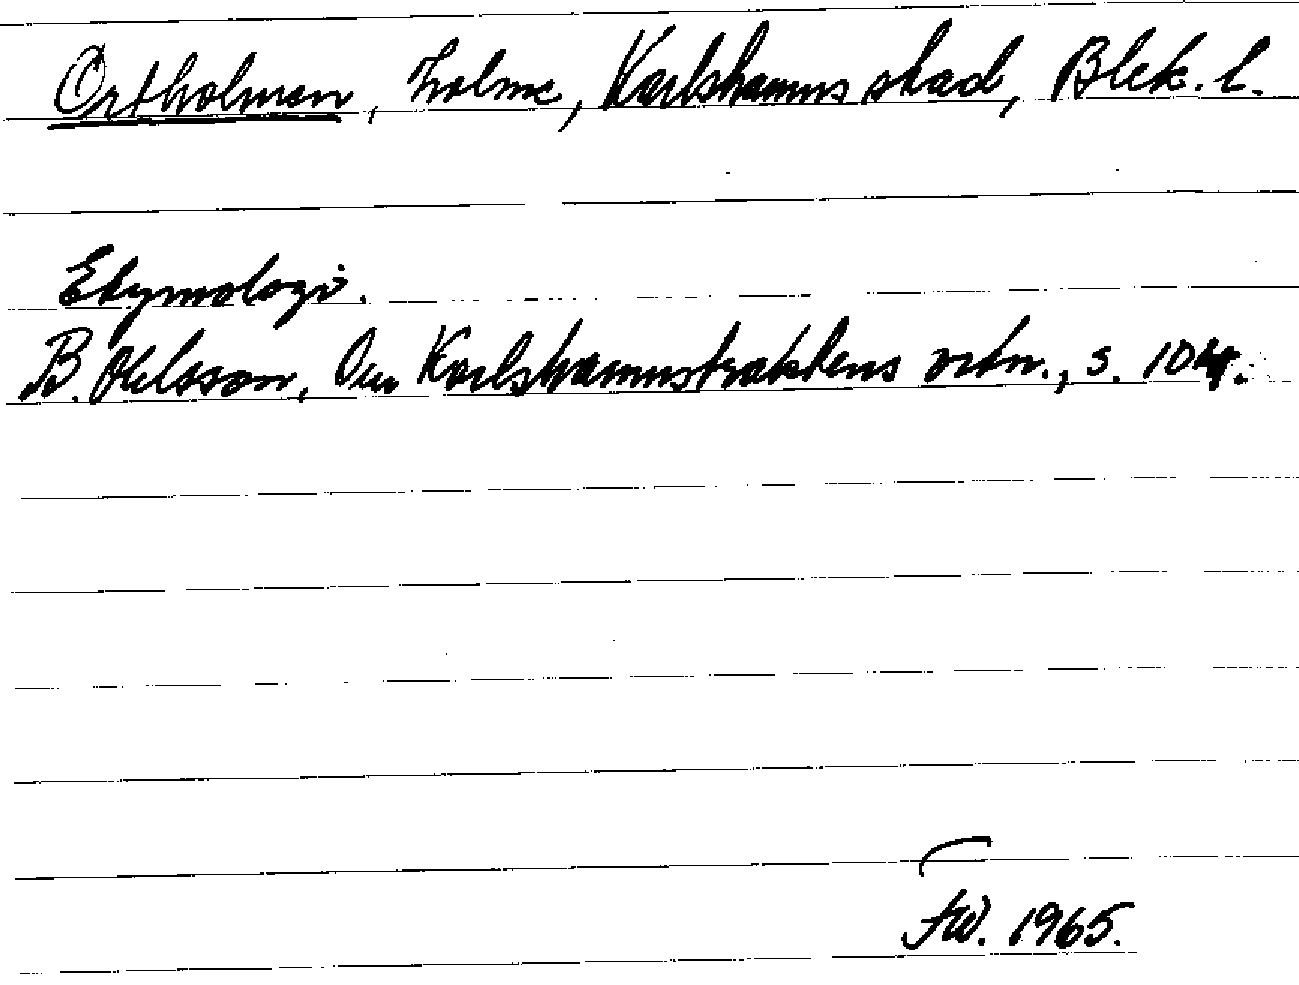 Ortholmen, holme, Karlshamns stad, Blek. l.
Etymologi.
B. Ohlsson, Om Karlshamnstraktens ortn., s. 104.
FW. 1965.